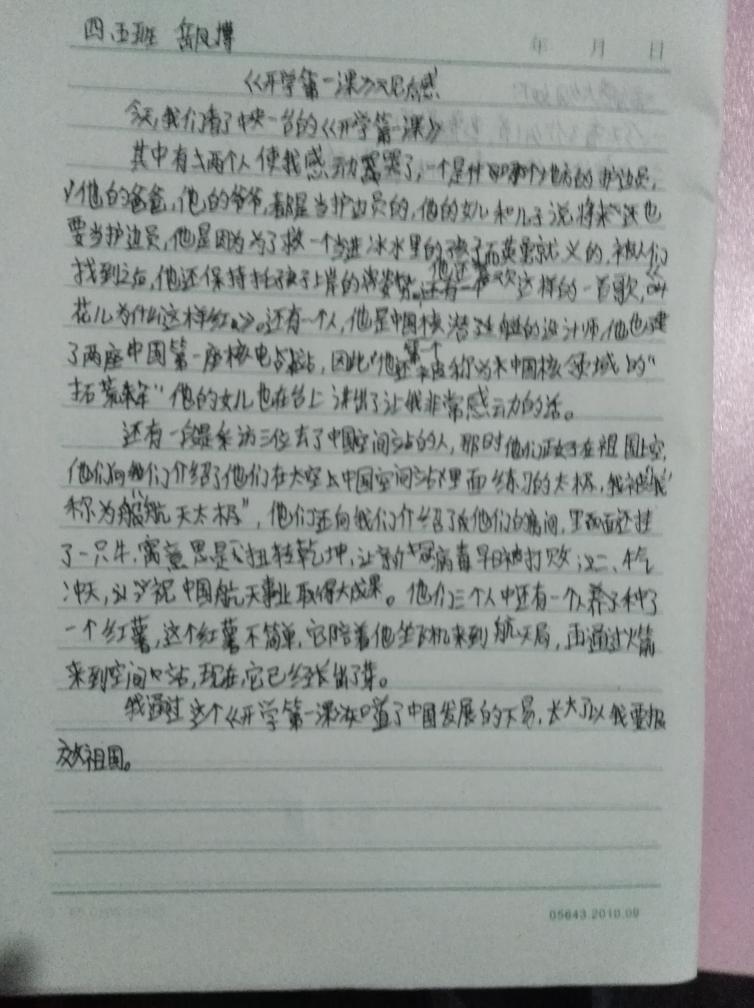 四、五班 岳
年 月 日
《开学第一课》观后感
今天,我们看了中央一台的《开学第一课》
其中有两个人使我感动哭了,一个是什 地方的护边员,
他的爸爸,他的爷爷,都是当护边员的,他的女儿和儿子说,将来 也
要当护边员,他是因为为了救一个 进冰水里的孩子而英勇就义的,被人们
找到之后,他还保持托孩子上岸的 姿势。他还 喜欢这样的一首歌,叫
花儿为什么这样红》。还有一个人,他是中国核潜艇的设计师,他也建
了两座中国第一座核电站,因此他还第一个被称为中国核领域的"
拓荒牛"他的女儿也在台上讲出了让我非常感动的话。
还有一段是采访三位去了中国空间站的人,那时他们正好在祖国上空,
他们向我们介绍了他们在太空中国空间站里面练习的太极,我
称为"航天太极",他们还向我们介绍了他们的房间,里面还挂
了一只牛,寓意思是一、扭转乾坤,让新冠病毒早日被打败;二、牛气
冲天,以祝中国航天事业取得大成果。他们三个人中还有一个人种了
一个红薯,这个红薯不简单,它陪着他坐飞机来到航天局,再通过火箭
来到空间站,现在,它已经长出了芽。
我通过这个《开学第一课》知道了中国发展的不易,长大了以我要报
效祖国。
05643.2010.09